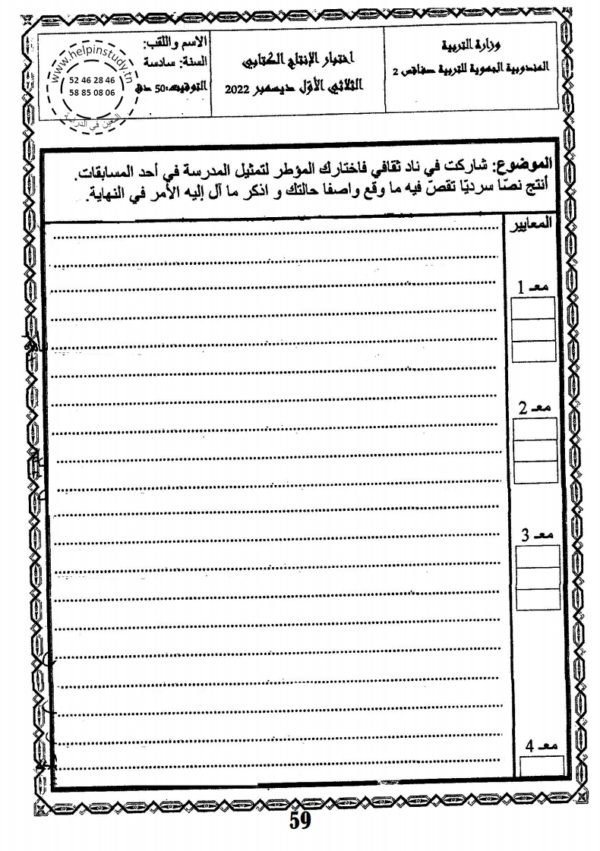 وزارة التربية
المندوبية الجهوية للتربية صفاقس 2
اختبار الإنتاج الكتابي
الثلاثي الأوّل ديسمبر 2022
الاسم واللقب:
السنة: سادسة
التوقيت:50 دق
www.helpinstudy.tn
52 46 28 46
58 85 08 06
الموضوع: شاركت في ناد ثقافي فاختارك المؤطر لتمثيل المدرسة في أحد المسابقات.
أنتج نصّا سرديّا تقصّ فيه ما وقع واصفا حالتك و اذكر ما آل إليه الأمر في النهاية.
المعايير
معـ 1
معـ 2
معـ 3
معـ 4
59